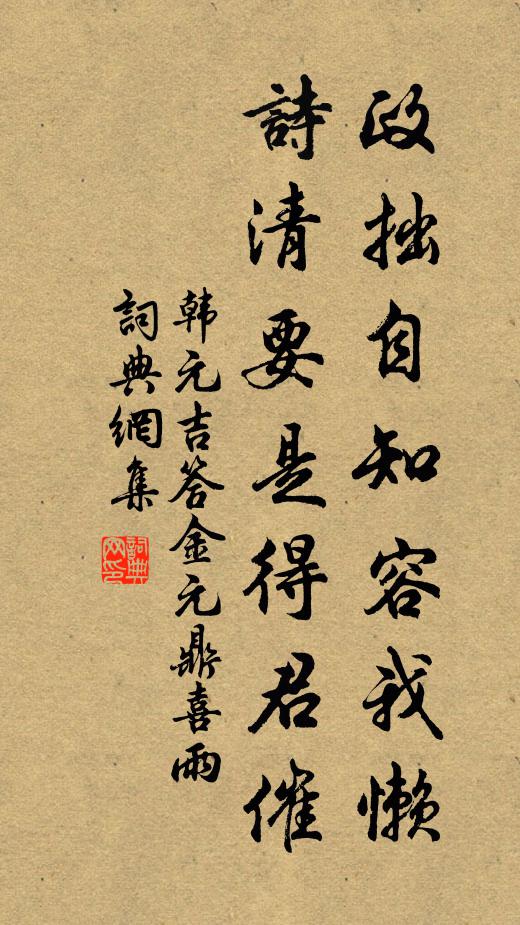 政拙自知容我懶
詩清要是得君催
韩元吉答金元鼎喜雨
詞典網集
詞典网印